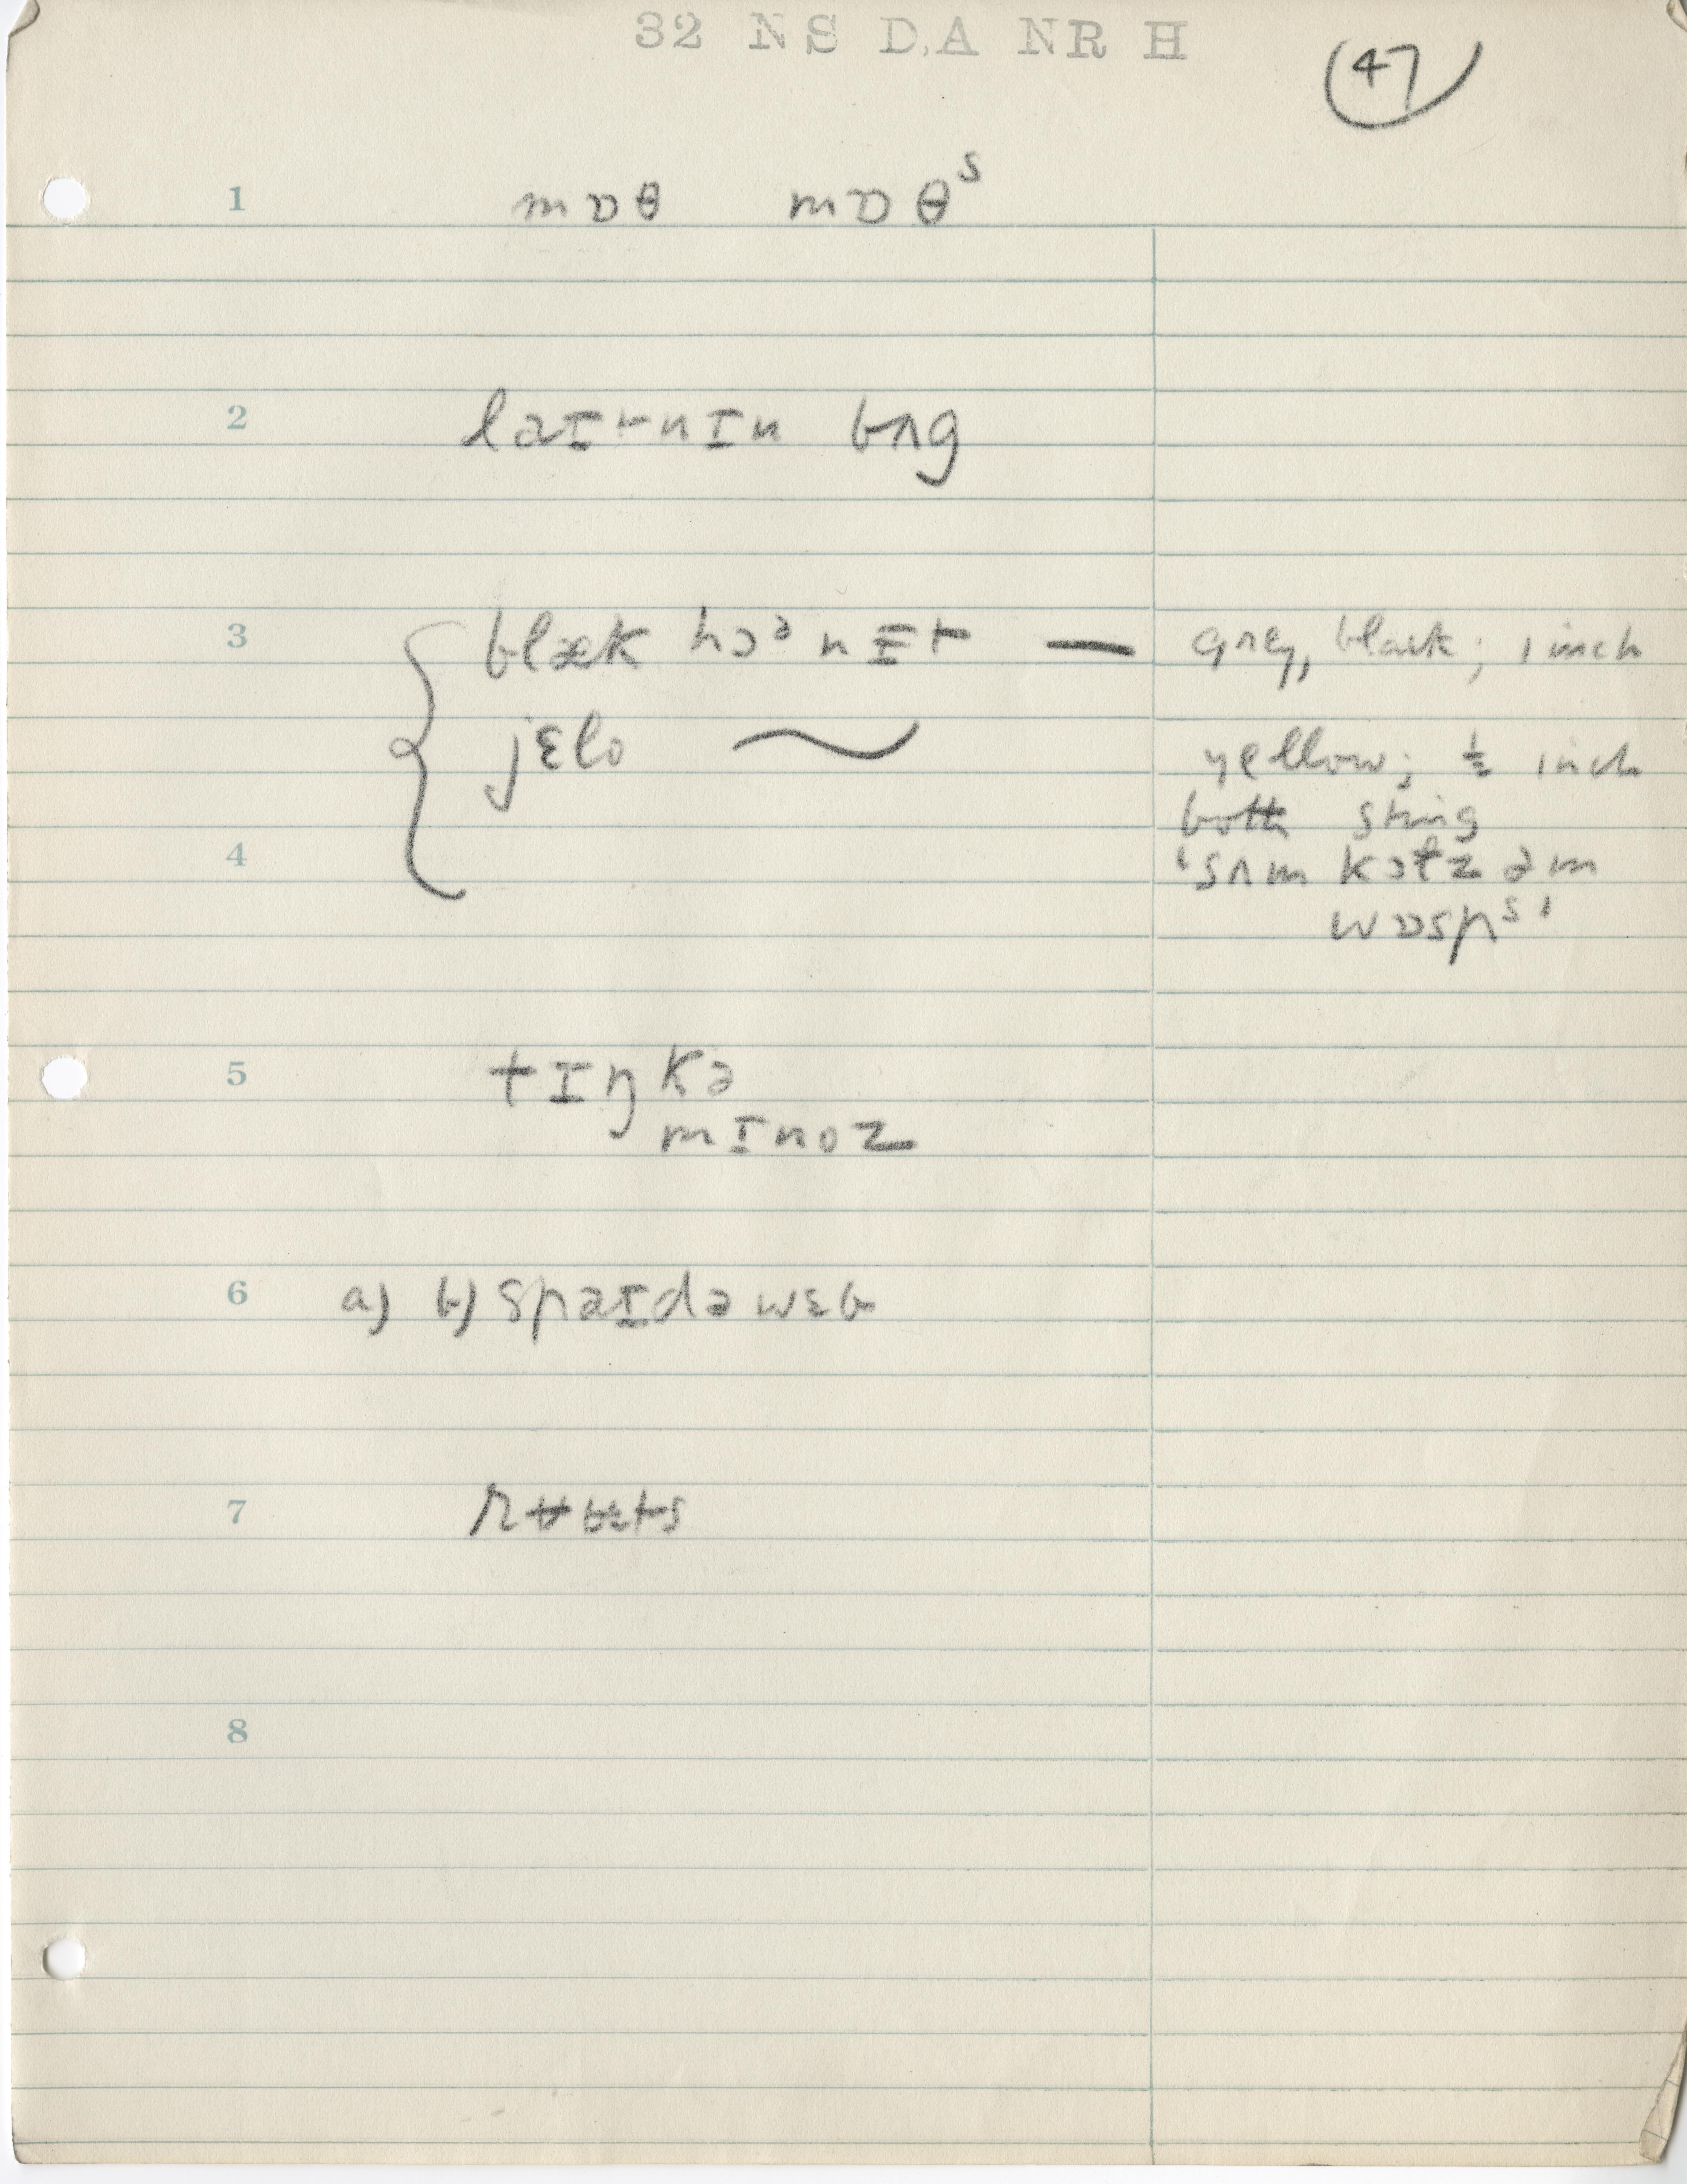 32 NS D,A NR H
47
1 mɒθ mɒθˢ
2 laɪtnɪn bʌg
3 blæk hɔᵊnɪt — grey, black; 1 inch
jɛlo ~ yellow; ½ inch
both sting
4 'sʌm kɔɫz əm
wɒspˢ'
5 tɪŋkə
mɪnoz
6 a) b) spaɪdəwɛb
7
8